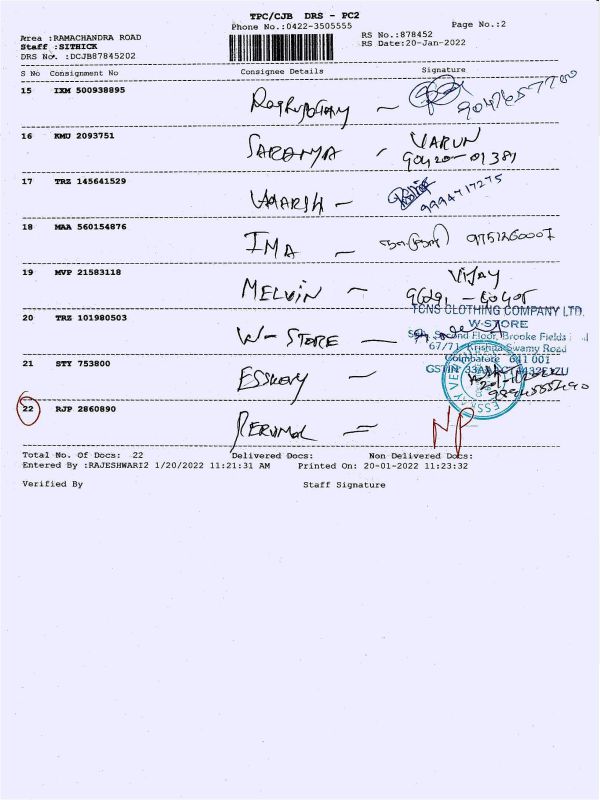 TPC/CJB DRS - PC2
Phone No.:0422-3505555
Page No.:2
Area :RAMACHANDRA ROAD
RS No.:878452
Staff :SITHICK
RS Date:20-Jan-2022
DRS No. :DCJB87845202
S No Consignment No Consignee Details Signature
15 IXM 500938895
16 KMU 2093751 SARANYA - VARUN
17 TRZ 145641529
9994717275
18 MAA 560154876 IMA - 9751260007
19 MVP 21583118 MELVIN - VIJAY
TCNS CLOTHING COMPANY LTD.
20 TRZ 101980503 W-STORE -
W-STORE
Second Floor, Brooke Fields
67/71, Krishna Swamy Road
Coimbatore 641 001
21 STY 753800
GSTIN
ESSKAY
22 RJP 2860890 PERUMAL = NP
Total No. Of Docs: 22 Delivered Docs: Non Delivered Docs:
Entered By :RAJESHWARI2 1/20/2022 11:21:31 AM Printed On: 20-01-2022 11:23:32
Verified By Staff Signature